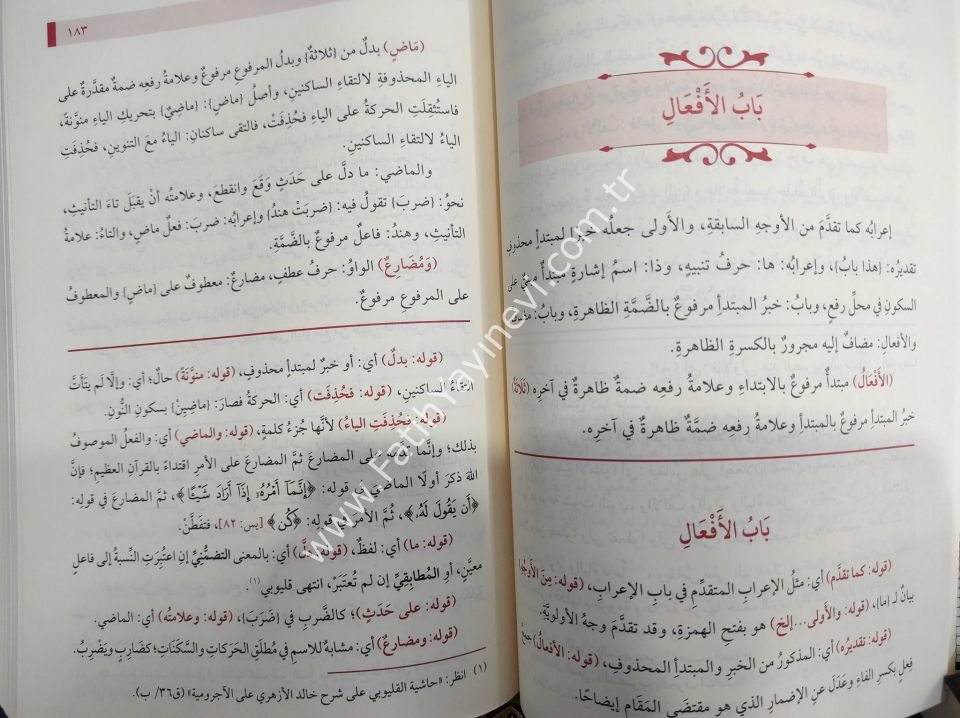 بَابُ الأَفْعَالِ
إعرابُه كما تقدَّمَ من الأوجهِ السابقةِ، والأَولى جعلُه خبرًا لمبتدأٍ محذوفٍ
تقديرُه: {هذا بابُ}، وإعرابُه: ها: حرفُ تنبيهٍ، وذا: اسمُ إشارةٍ مبتدأٌ مبنيٌّ على
السكونِ في محلِّ رفعٍ، وبابُ: خبرُ المبتدأ مرفوعٌ بالضَّمَّةِ الظاهرةِ، وبابُ: مضافٌ
والأفعالِ: مضافٌ إليه مجرورٌ بالكسرةِ الظاهرةِ.
(الأَفْعَالُ) مبتدأٌ مرفوعٌ بالابتداءِ وعلامةُ رفعِه ضمةٌ ظاهرةٌ في آخرِه (ثَلَاثَةٌ)
خبرُ المبتدأ مرفوعٌ بالمبتدأ وعلامةُ رفعِه ضمَّةٌ ظاهرةٌ في آخرِه.
بَابُ الأَفْعَالِ
(قوله: كما تقدم) أي: مثلُ الإعرابِ المتقدِّمِ في بابِ الإعرابِ، (قوله: مِنَ الأَوجُهِ)
بيانٌ لـ (ما)، (قوله: والأَولى...إلخ) هو بفتحِ الهمزةِ، وقد تقدَّمَ وجهُ الأولويَّةِ.
(قوله: تقديرُه) أي: المذكورُ من الخبرِ والمبتدأ المحذوفِ، (قوله: الأفعالُ) جمعُ
فِعلٍ بكسرِ الفاءِ وعَدَلَ عنِ الإضمارِ الذي هو مقتضَى المَقَامِ إيضاحًا.
١٨٣
(مَاضٍ) بدلٌ من {ثلاثةٌ} وبدلُ المرفوعِ مرفوعٌ وعلامةُ رفعِه ضمةٌ مقدَّرةٌ على
الياءِ المحذوفةِ لالتقاءِ الساكنينِ، وأصلُ {ماضٍ}: {ماضِيٌ} بتحريكِ الياءِ منوَّنةً،
فاستُثقِلَتِ الحركةُ على الياءِ فحُذِفَتْ، فالتقى ساكنانِ: الياءُ معَ التنوينِ، فحُذِفَتِ
الياءُ لالتقاءِ الساكنينِ.
والماضي: ما دلَّ على حَدَثٍ وَقَعَ وانقطعَ، وعلامتُه أنْ يقبَلَ تاءَ التأنيثِ،
نحوُ: {ضربَ} تقولُ فيه: {ضربَتْ هندُ} وإعرابُه: ضربَ: فعلٌ ماضٍ، والتاءُ: علامةُ
التأنيثِ، وهندُ: فاعلٌ مرفوعٌ بالضَّمَّةِ.
(وَمُضَارِعٌ) الواوُ: حرفُ عطفٍ، مضارعٌ: معطوفٌ على {ماضٍ} والمعطوفُ
على المرفوعِ مرفوعٌ.
(قوله: بدلٌ) أي: أو خبرٌ لمبتدأٍ محذوفٍ، (قوله: منوَّنةً) حالٌ؛ أي: وإلَّا لَم يتأتَّ
التقاءُ الساكنينِ، (قوله: فحُذِفت) أي: الحركةُ فصارَ: {ماضِيِنْ} بسكونِ النُّونِ.
(قوله: فحُذِفَتِ الياءُ) لأنَّها جُزءُ كلمةٍ، (قوله: والماضي) أي: والفعلُ الموصوفُ
بذلك؛ وإنَّما قدَّمه على المضارعَ ثمَّ المضارعَ على الأمرِ اقتداءً بالقرآنِ العظيمِ؛ فإنَّ
اللهَ ذكرَ أولًا الماضيَ في قوله: ﴿إِنَّمَآ أَمْرُهُۥٓ إِذَآ أَرَادَ شَيْـًٔا﴾، ثمَّ المضارعَ في قوله:
﴿أَن يَقُولَ لَهُۥ﴾، ثُمَّ الأمرَ في قوله: ﴿كُن﴾ [يس: ٨٢]، فتفَطَّنْ.
(قوله: ما) أي: لفظٌ، (قوله: دلَّ) أي: بالمعنى التضمُّنيِّ إنِ اعتُبِرَتِ النِّسبةُ إلى فاعلٍ
معيَّنٍ، أو المُطابِقيِّ إن لم تُعتَبَرْ، انتهى قليوبي(١).
(قوله: على حَدَثٍ)؛ كالضَّربِ في (ضَرَبَ)، (قوله: وعلامتُه) أي: الماضي.
(قوله: ومضارعٌ) أي: مشابهٌ للاسمِ في مُطلَقِ الحَرَكاتِ والسَّكَنَاتِ؛ كضَارِبٍ ويَضْرِبُ.
(١) انظر: «حاشية القليوبي على شرح خالد الأزهري على الآجرومية» (ق٣٦/ ب).
www.FatihYayinevi.com.tr